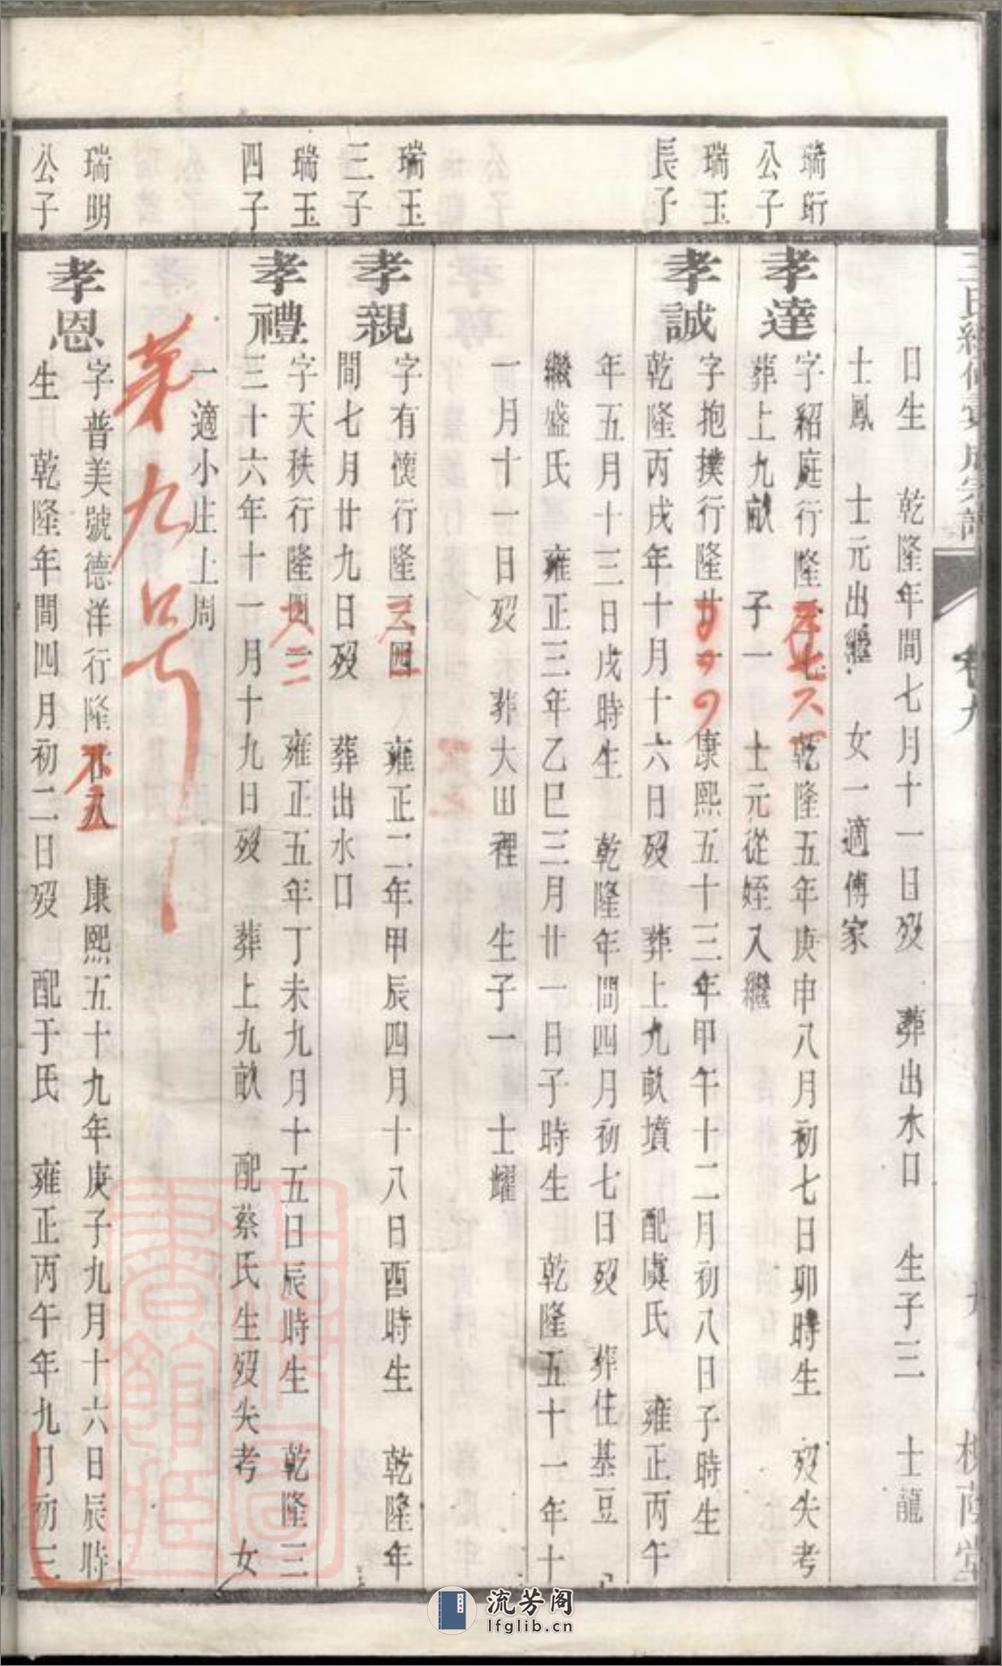 日生 乾隆年間七月十一日歿 葬出水口 生子三 士龍
士鳳 士元出繼 女一適傅家
瑞珩
公子
孝達
字紹庭行隆 乾隆五年庚申八月初七日卯時生 歿失考
葬上九畝 子一 士元從姪入繼
瑞玉
長子
孝誠
字抱撲行隆 康熙五十三年甲午十二月初八日子時生
乾隆丙戌年十月十六日歿 葬上九畝墳 配虞氏 雍正丙午
年五月十三日戌時生 乾隆年間四月初七日歿 葬住基豆
繼盛氏 雍正三年乙巳三月廿一日子時生 乾隆五十一年十
一月十一日歿 葬大田裡 生子一 士耀
瑞玉
三子
孝親
字有懷行隆三四 雍正二年甲辰四月十八日酉時生 乾隆年
間七月廿九日歿 葬出水口
瑞玉
四子
孝禮
字天秩行隆四一 雍正五年丁未九月十五日辰時生 乾隆三
三十六年十一月十九日歿 葬上九畝 配蔡氏生歿失考 女
一適小庄上周
第九号
瑞明
公子
孝恩
字普美號德洋行隆廿八 康熙五十九年庚子九月十六日辰時
生 乾隆年間四月初二日歿 配于氏 雍正丙午年九月初三
卷九
流芳阁
lfglib.cn